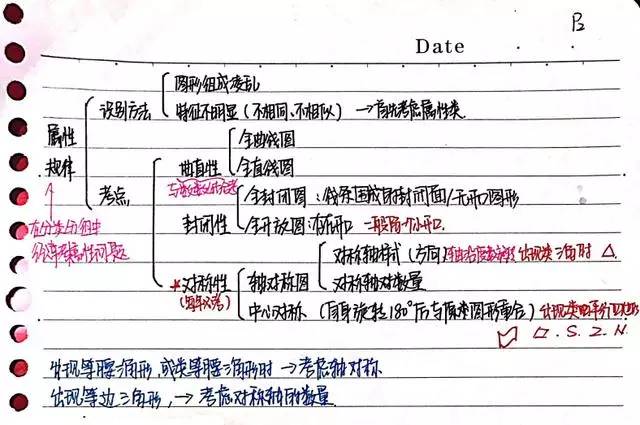 B
Date
图形组成凌乱
识别方法
特征不明显（不相同、不相似）→首先考虑属性类
属性
规律
全曲线图
曲直性
全直线图
考点
全封闭图：线条围成封闭面/无开口图形
封闭性
全开放图：有开口 一般留一个小开口
在分类分组中
经常考属性问题
对称轴样式（方向） 出现类三角时 △
*对称性
轴对称图
对称轴对数量
（每年必考）
中心对称（自身旋转180°后与原来图形重合）出现类
S.Z.N.
出现等腰三角形，或类等腰三角形时→考虑轴对称
出现等边三角形，→考虑对称轴的数量